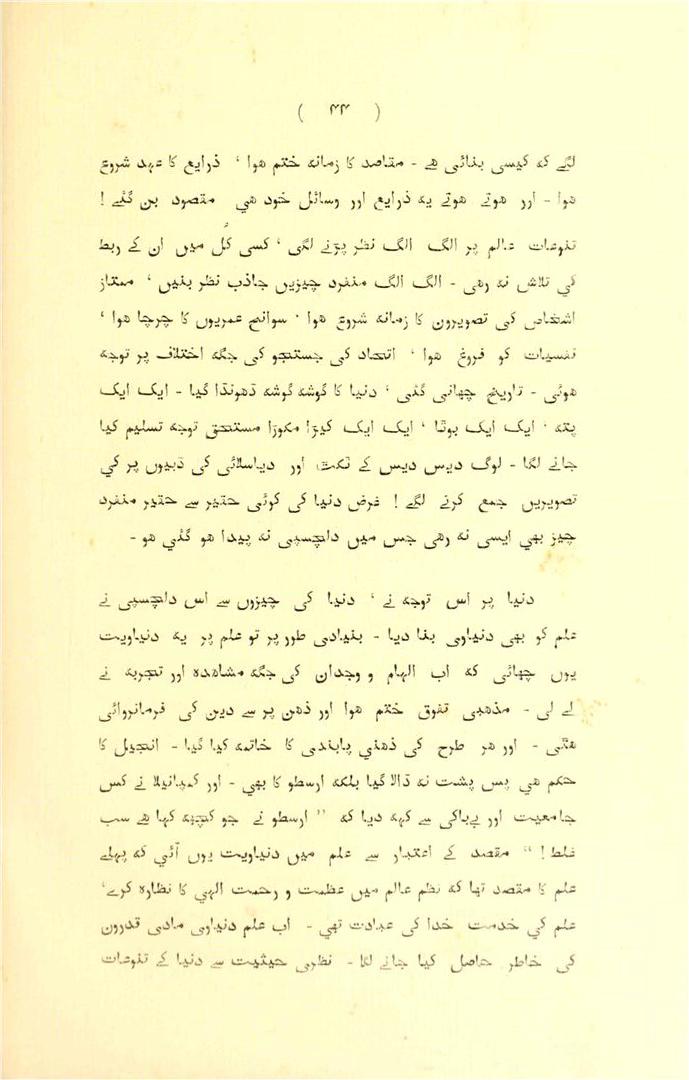 ( ۴۴ )
لگے کہ کیسی بنائی ھے - مقاصد کا زمانہ ختم ھوا ، ذرایع کا عہد شروع
ھوا - اور ھوتے ھوتے یہ ذرایع اور وسائل خود ھی مقصود بن گئے !
تنوعات عالم پر الگ الگ نظر پڑنے لگی ، کسی کُل میں ان کے ربط
کی تلاش نہ رھی - الگ الگ منفرد چیزیں جاذب نظر بنیں ، ممتاز
اشخاص کی تصویروں کا زمانہ شروع ھوا ، سوانح عمریوں کا چرچا ھوا ،
نفسیات کو فروغ ھوا ، اتحاد کی جستجو کی جگہ اختلاف پر توجہ
ھوئی - تاریخ چھانی گئی ، دنیا کا گوشہ گوشہ ڈھونڈا گیا - ایک ایک
پتہ ، ایک ایک بوٹا ، ایک ایک کیڑا مکوڑا مستحق توجہ تسلیم کیا
جانے لگا - لوگ دیس دیس کے ٹکٹ اور دیاسلائی کی ڈبیوں پر کی
تصویریں جمع کرنے لگے ! غرض دنیا کی کوئی حقیر سے حقیر منفرد
چیز بھی ایسی نہ رھی جس میں دلچسپی نہ پیدا ھو گئی ھو -
دنیا پر اس توجہ نے ، دنیا کی چیزوں سے اس دلچسپی نے
علم کو بھی دنیاوی بنا دیا - بنیادی طور پر تو علم پر یہ دنیاویت
یوں چھائی کہ اب الہام و وجدان کی جگہ مشاھدہ اور تجربہ نے
لے لی - مذھبی تفوق ختم ھوا اور ذھن پر سے دین کی فرمانروائی
ھٹی - اور ھر طرح کی ذھنی پابندی کا خاتمہ کیا گیا - انجیل کا
حکم ھی پس پشت نہ ڈالا گیا بلکہ ارسطو کا بھی - اور کمپانیلا نے کس
جامعیت اور بےباکی سے کہہ دیا کہ " ارسطو نے جو کچھہ کہا ھے سب
غلط ! " مقصد کے اعتبار سے علم میں دنیاویت یوں آئی کہ پہلے
علم کا مقصد تھا کہ نظم عالم میں عظمت و رحمت الٰہی کا نظارہ کرے ،
علم کی خدمت خدا کی عبادت تھی - اب علم دنیاوی مادی قدروں
کی خاطر حاصل کیا جانے لگا - نظری حیثیت سے دنیا کے تنوعات